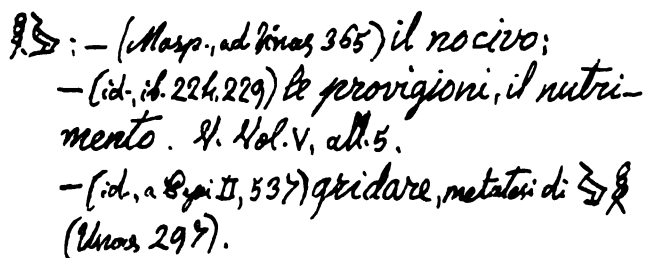 : – (Masp., ad Unas 365) il nocivo;
– (id., ib. 224. 229) le provigioni, il nutri-
mento. V. Vol. V, all. 5.
– (id., a Pepi II, 537) gridare, metatesi di
(Unas 297).